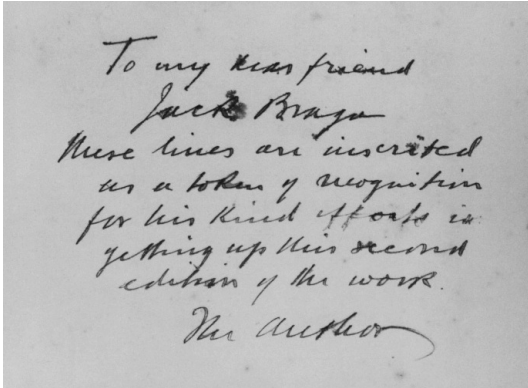 To my dear friend
Jack Braga
these lines are inscribed
as a token of recognition
for his kind efforts in
getting up this second
edition of the work.
The Author